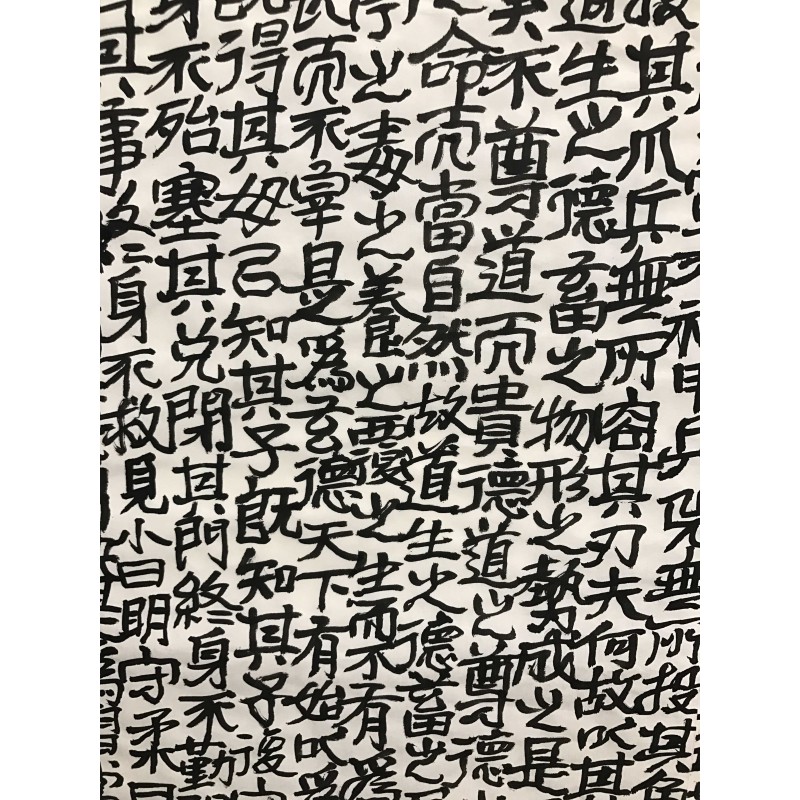 不甲兵兕無所投其角
其爪兵無所容其刃夫何故以其
道生之德畜之物形之勢成之是
莫不尊道而貴德道之尊德
命而當自然故道生之德畜之
亭之毒之養之覆之生而不有爲
而不宰是爲玄德天下有始以爲
既得其母已知其子既知其子復
身不殆塞其兌閉其門終身不勤
其事終身不救見小曰明守柔曰